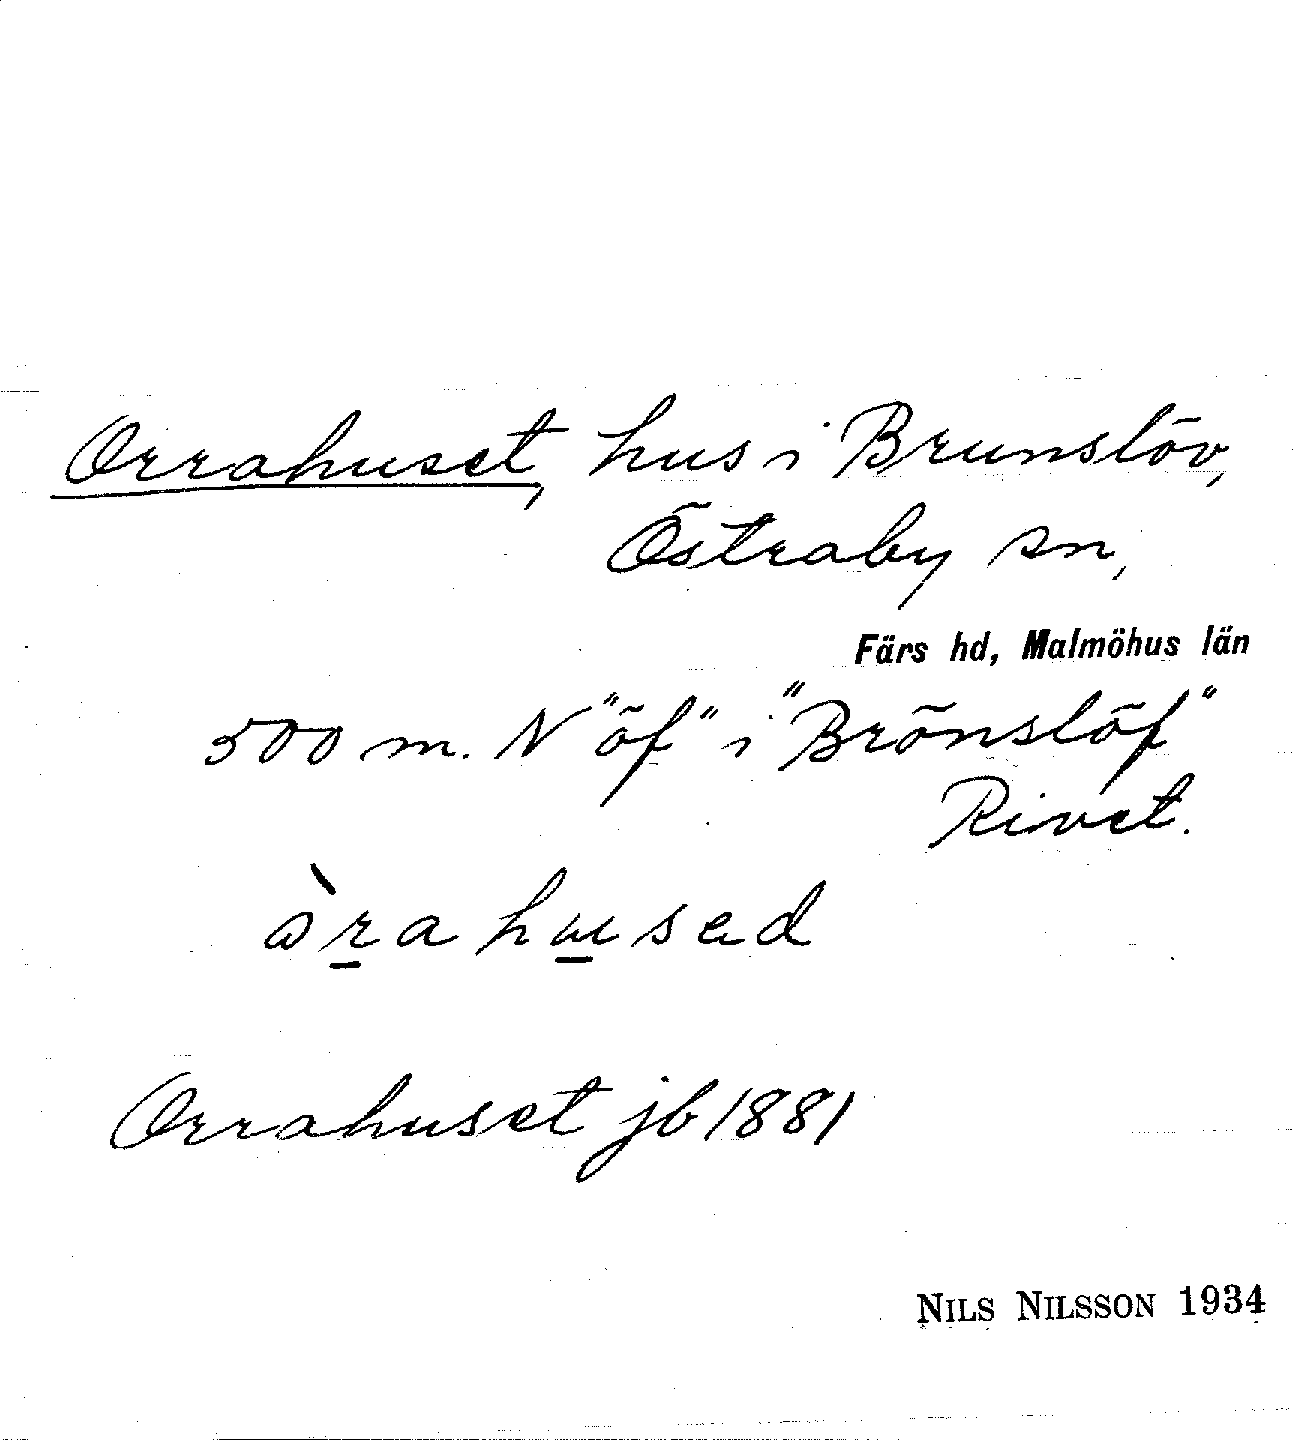 Orrahuset, hus i Brunslöv,
Östraby sn,
Färs hd, Malmöhus län
500 m. N "öf" i "Brönslöf"
Rivet.
àrahused
Orrahuset jb 1881
NILS NILSSON 1934